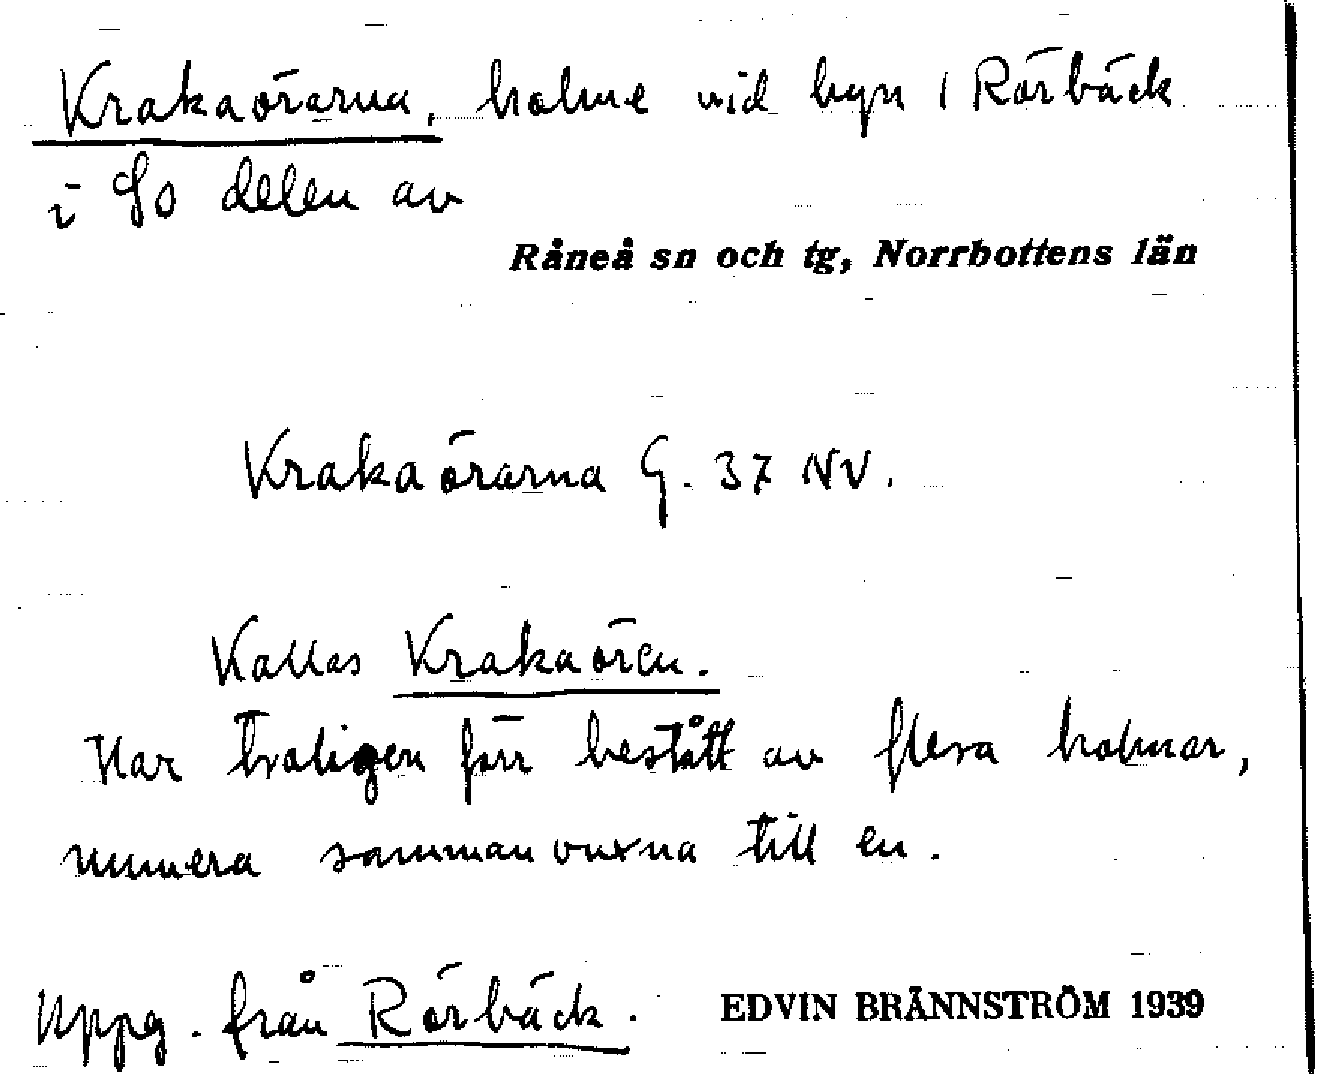 Krakaörarna, holme vid byn i Rörbäck
i So delen av
Råneå sn och tg, Norrbottens län
Krakaörarna G. 37 NV.
Kallas Krakaören.
Har troligen förr bestått av flera holmar,
numera sammanvuxna till en.
Uppg. från Rörbäck.
EDVIN BRÄNNSTRÖM 1939